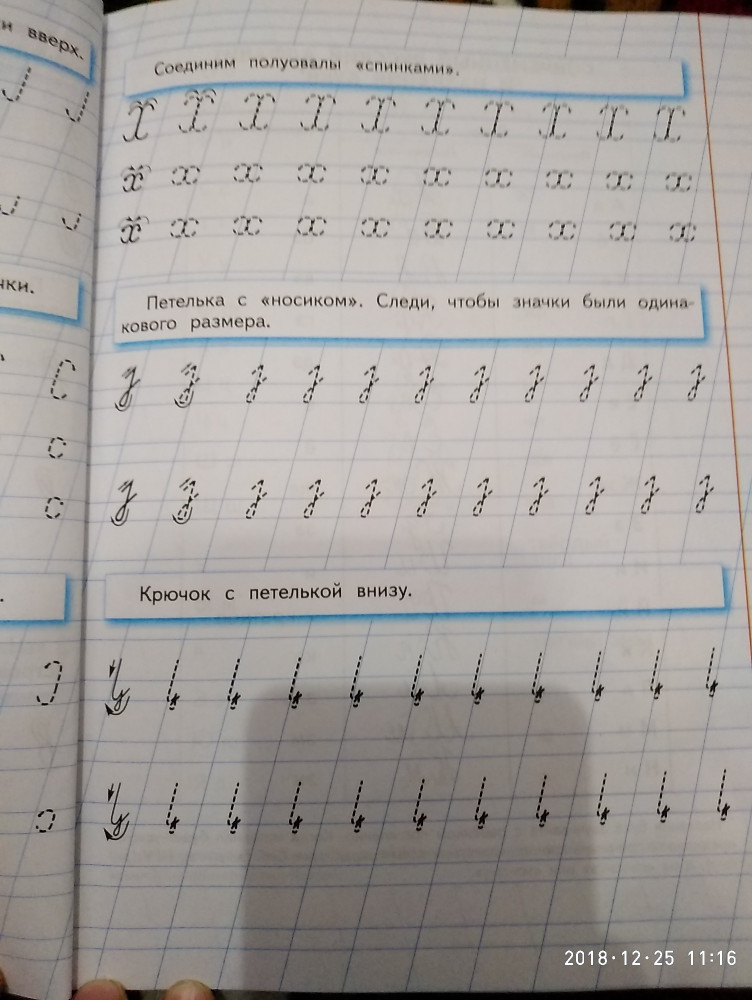 и вверх.
Соединим полуовалы «спинками».
чки.
Петелька с «носиком». Следи, чтобы значки были одина-
кового размера.
Крючок с петелькой внизу.
2018·12·25 11:16